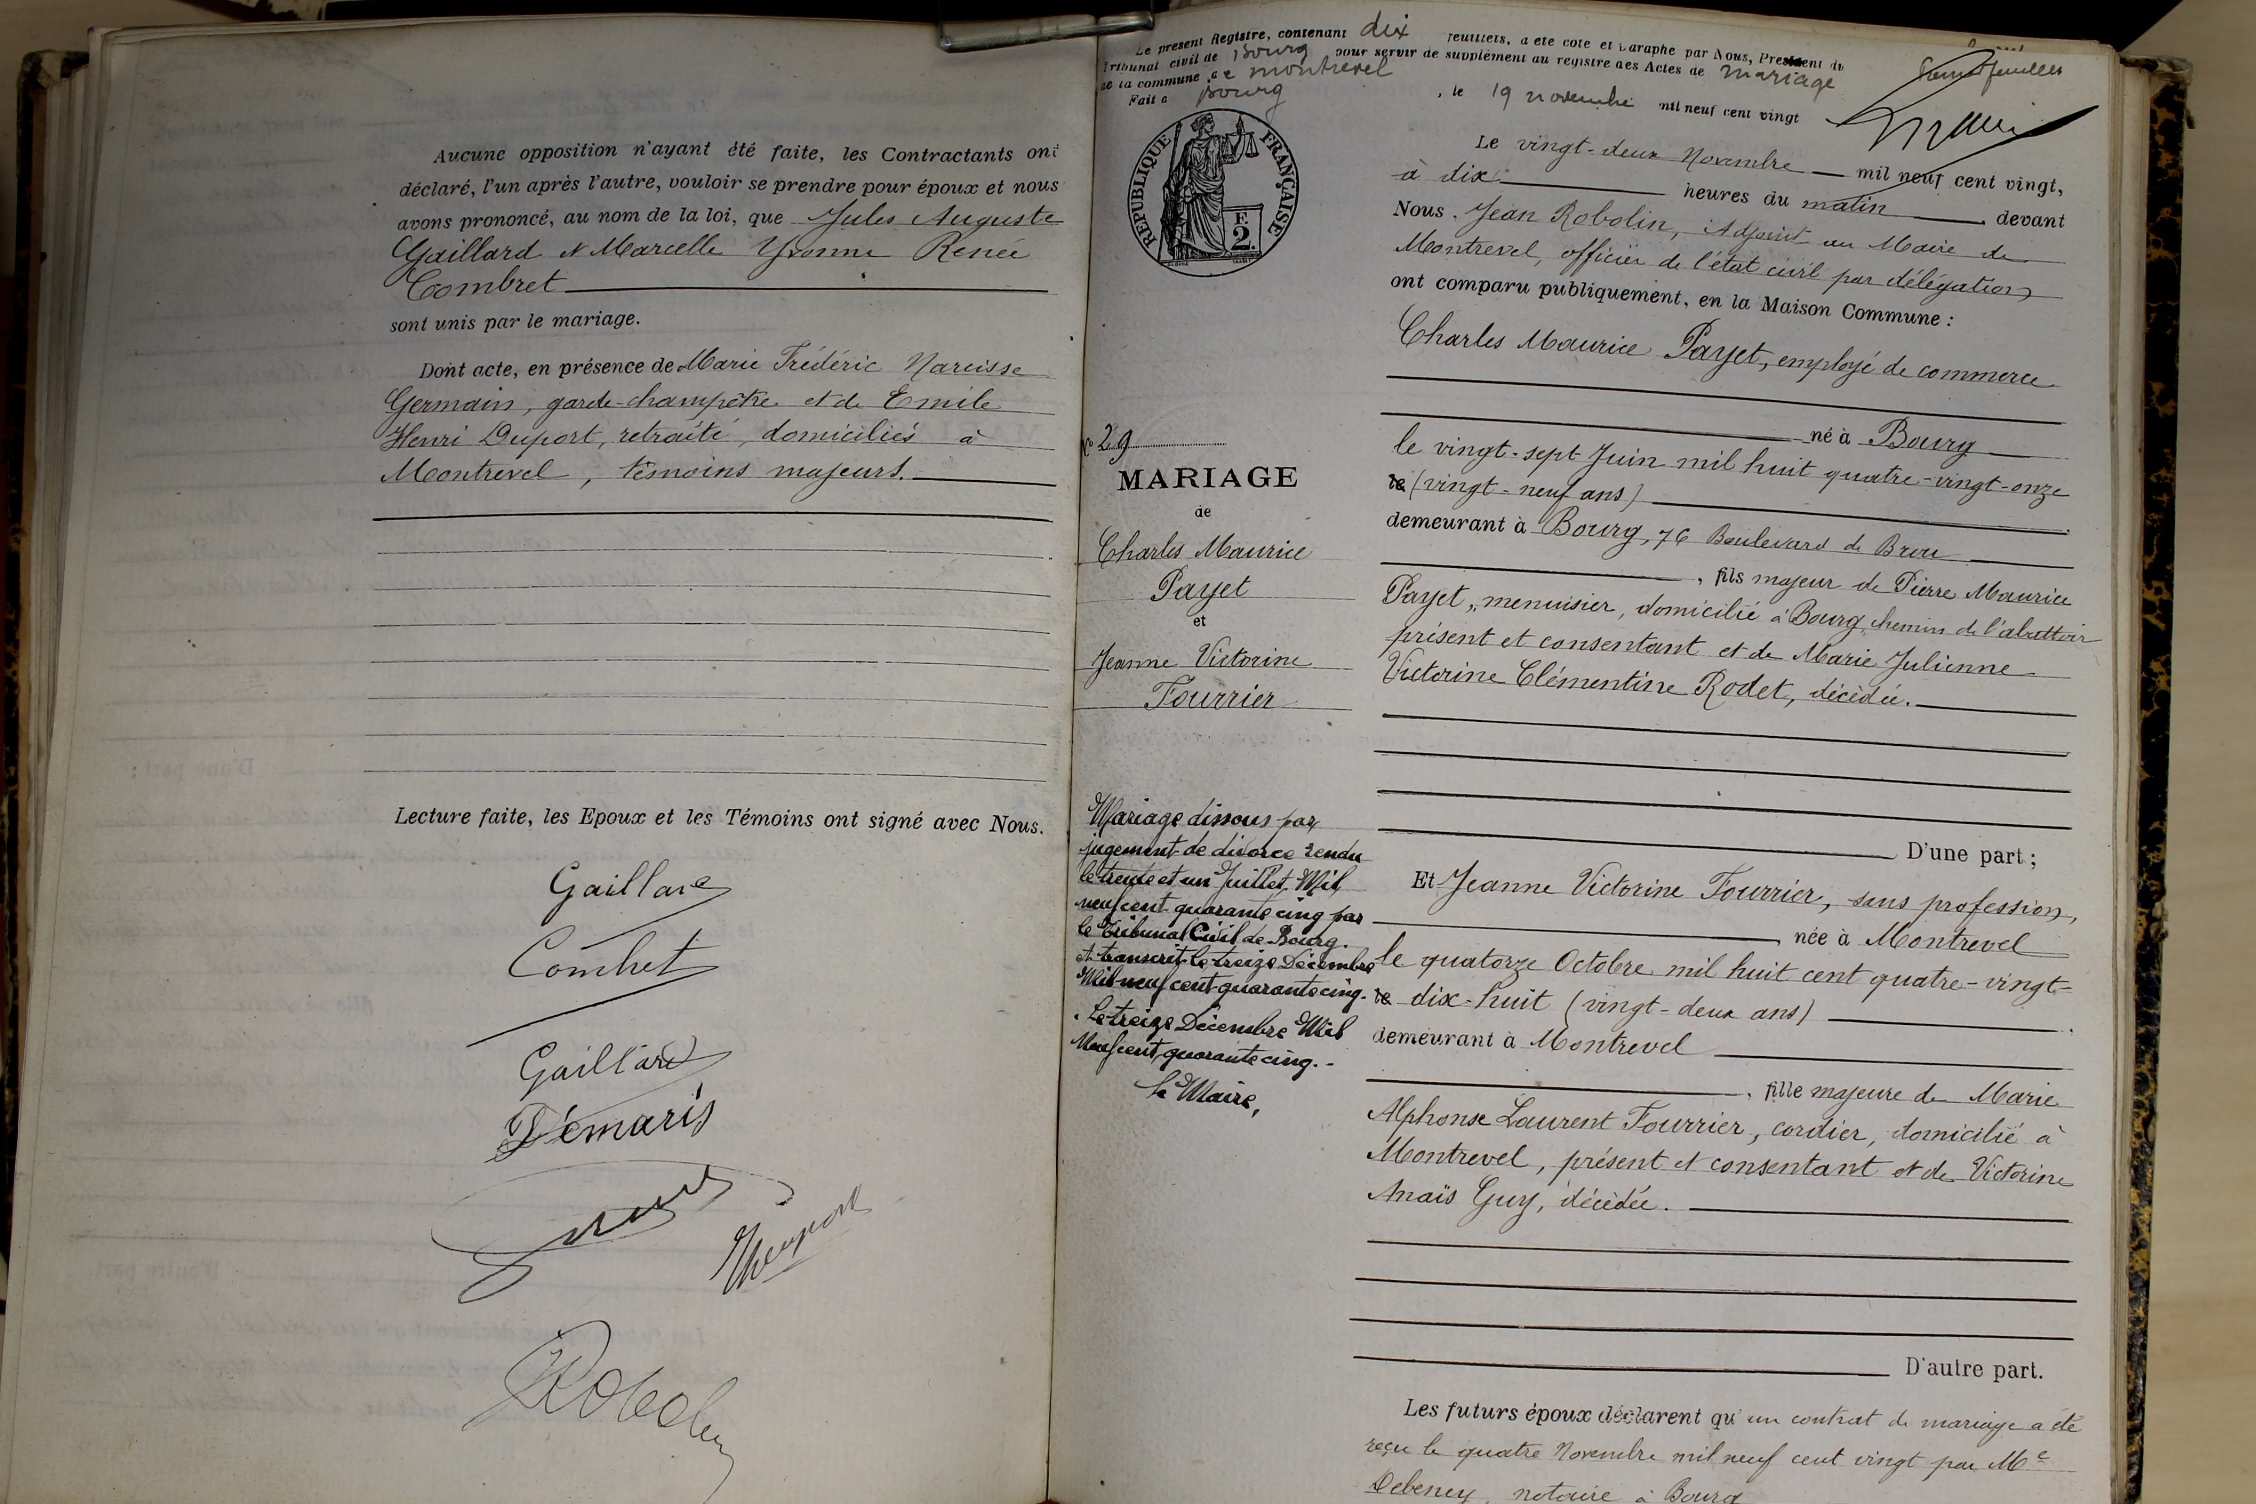 Aucune opposition n'ayant été faite, les Contractants ont
déclaré, l'un après l'autre, vouloir se prendre pour époux et nous
avons prononcé, au nom de la loi, que Jules Auguste
Gaillard et Marcelle Yvonne Renée
Combret
sont unis par le mariage.
Dont acte, en présence de Marie Frédéric Narcisse
Germain, garde-champêtre et de Emile
Henri Duport, retraité, domiciliés à
Montrevel, témoins majeurs.
Lecture faite, les Epoux et les Témoins ont signé avec Nous.
Gaillard
Combret
Gaillard
Démaris
Le present Registre, contenant dix feuillets, a ete cote et paraphe par Nous, President du
Tribunal civil de Bourg pour servir de supplément au registre des Actes de mariage
de la commune de Montrevel
Fait a Bourg, le 19 novembre mil neuf cent vingt
RÉPUBLIQUE FRANÇAISE
F.
2.
Le vingt-deux Novembre mil neuf cent vingt,
à dix heures du matin devant
Nous, Jean Robolin, Adjoint au Maire de
Montrevel, officier de l'état civil par délégation
ont comparu publiquement, en la Maison Commune :
Charles Maurice Payet, employé de commerce
né à Bourg
le vingt-sept Juin mil huit quatre-vingt-onze
le (vingt-neuf ans)
demeurant à Bourg, 76 Boulevard de Brou
, fils majeur de Pierre Maurice
Payet, menuisier, domicilié à Bourg, chemin de l'abattoir
présent et consentant et de Marie Julienne
Victorine Clémentine Rodet, décédée.
D'une part ;
Et Jeanne Victorine Fourrier, sans profession,
née à Montrevel
le quatorze Octobre mil huit cent quatre-vingt-
le dix-huit (vingt-deux ans)
demeurant à Montrevel
, fille majeure de Marie
Alphonse Laurent Fourrier, cordier, domicilié à
Montrevel, présent et consentant et de Victorine
Anaïs Guy, décédée.
D'autre part.
Les futurs époux déclarent qu'un contrat de mariage a été
reçu le quatre Novembre mil neuf cent vingt par Me
Debeney, notaire à Bourg
No 29
MARIAGE
de
Charles Maurice
Payet
et
Jeanne Victorine
Fourrier
Mariage dissous par
jugement de divorce rendu
le trente et un Juillet Mil
neuf cent quarante cinq par
le Tribunal Civil de Bourg.
et transcrit le treize Décembre
Mil neuf cent quarante cinq.
Le treize Décembre Mil
Neuf cent quarante cinq.-
Le Maire,